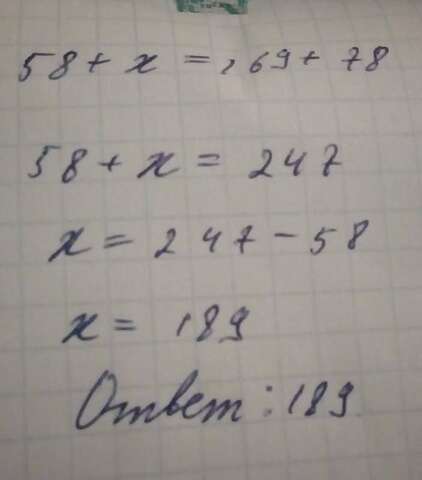 58 + x = 169 + 78
58 + x = 247
x = 247 - 58
x = 189
Ответ: 189